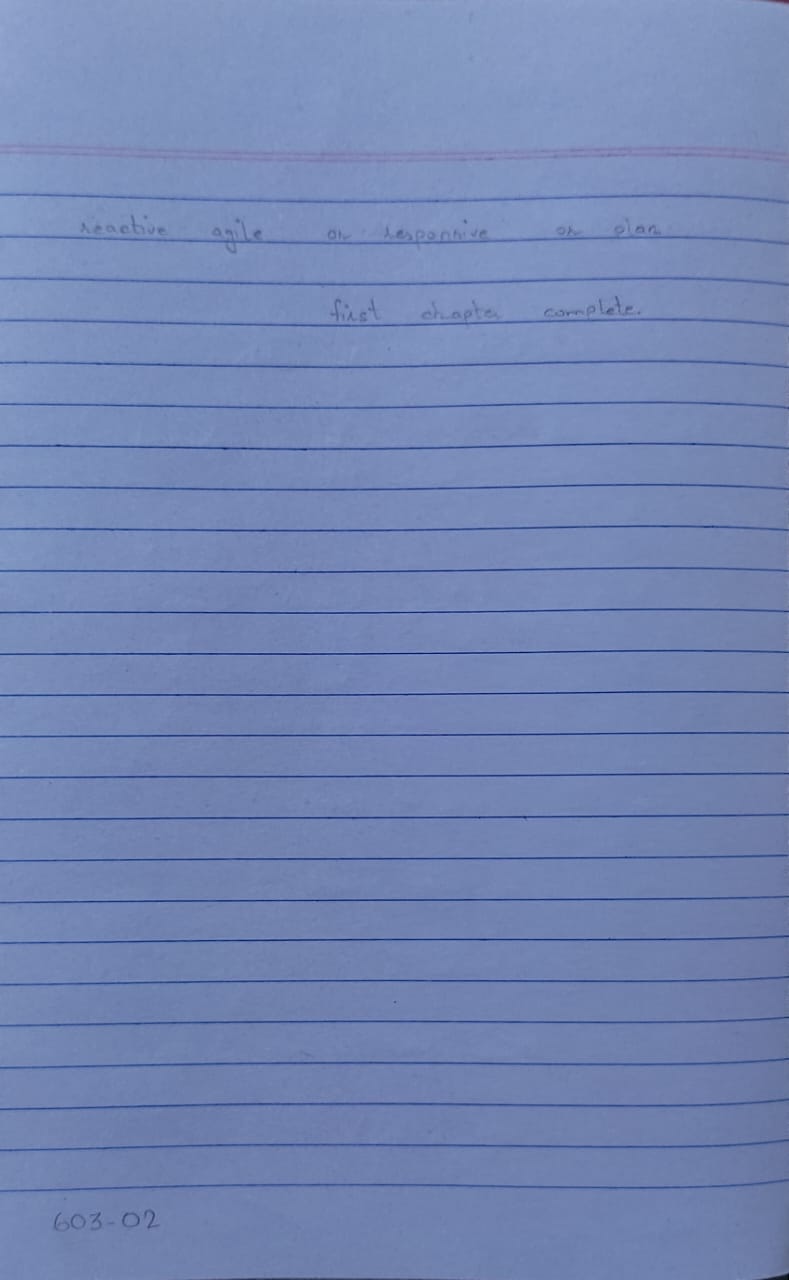 reactive agile or responsive or plan
first chapter complete.
603-02